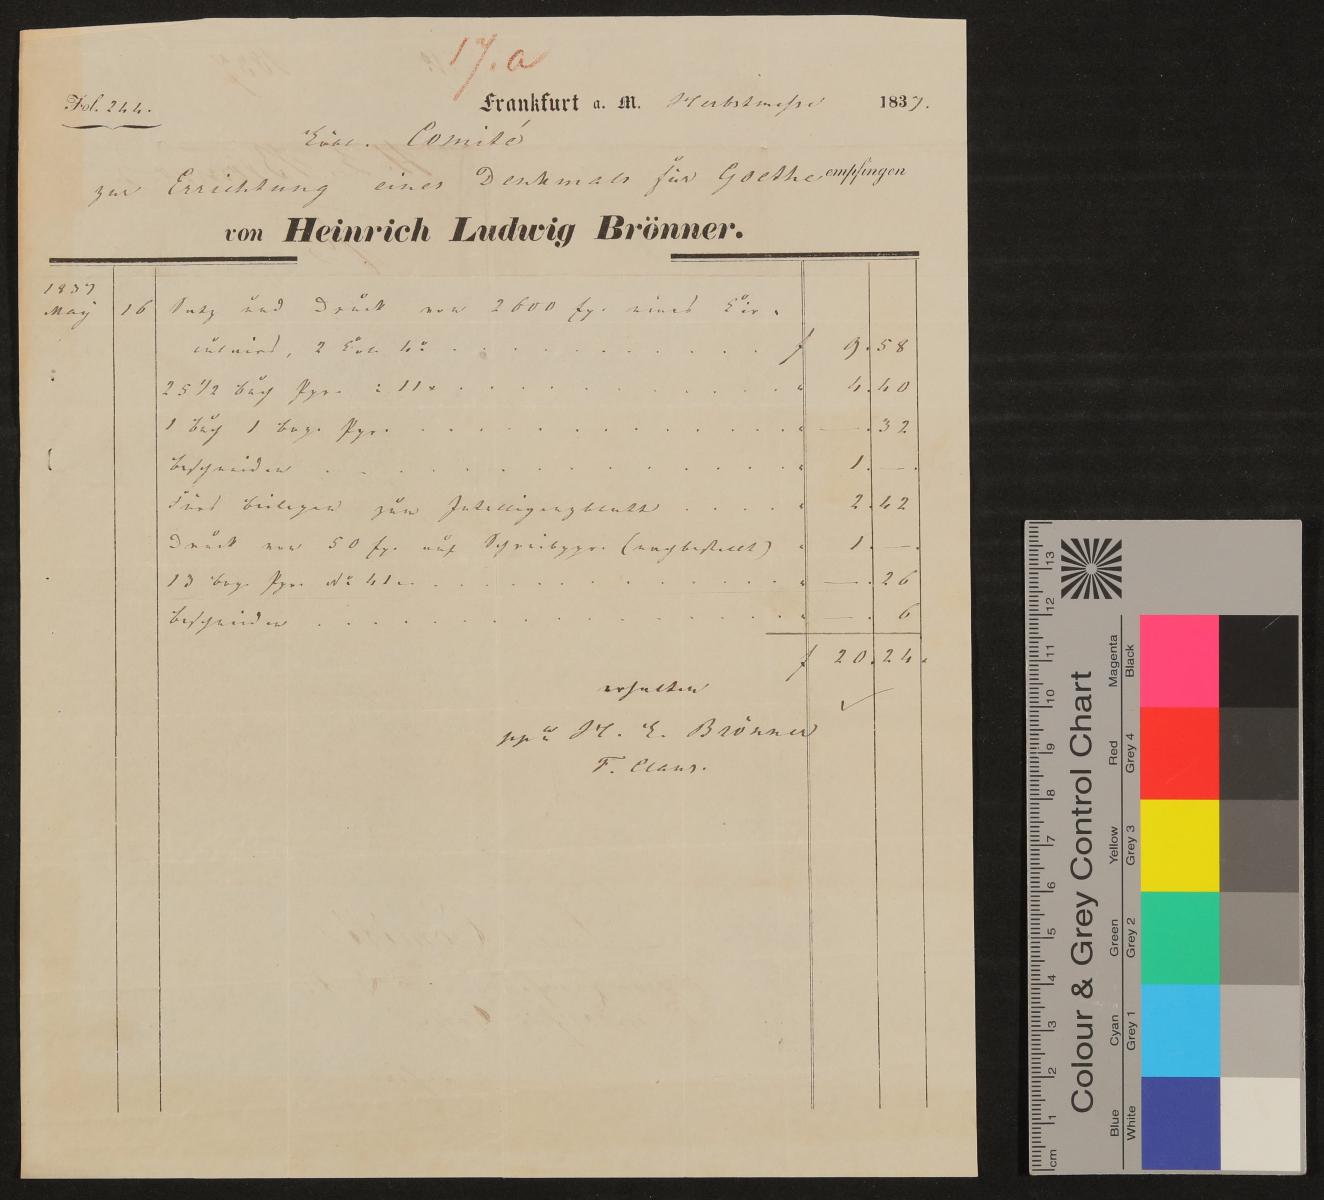 17.a
Fol. 244.
Frankfurt a. M. Herbstmesse 1837.
Löbl. Comité
zur Errichtung eines Denkmals für Goethe empfingen
von Heinrich Ludwig Brönner.
1837
May 16 Satz und Druck von 2600 Ex. eines Cir-
culairs, 2 Col. 4° f 9.58
25 1/2 Buch Ppr. 11 " 4.40
1 Buch 1 Bog. Ppr. " —.32
Beschneiden " 1.—.
Fürs Beilegen zum Intelligenzblatt " 2.42
Druck von 50 Ex. auf Schreibppr. (nachbestellt) " 1.—.
13 Bog. Ppr. No 41 " —.26
Beschneiden " —.6
f 20.24.
erhalten
ppa H. L. Brönner
F. Claus.
Colour & Grey Control Chart
Blue Cyan Green Yellow Red Magenta
White Grey 1 Grey 2 Grey 3 Grey 4 Black
cm 1 2 3 4 5 6 7 8 9 10 11 12 13